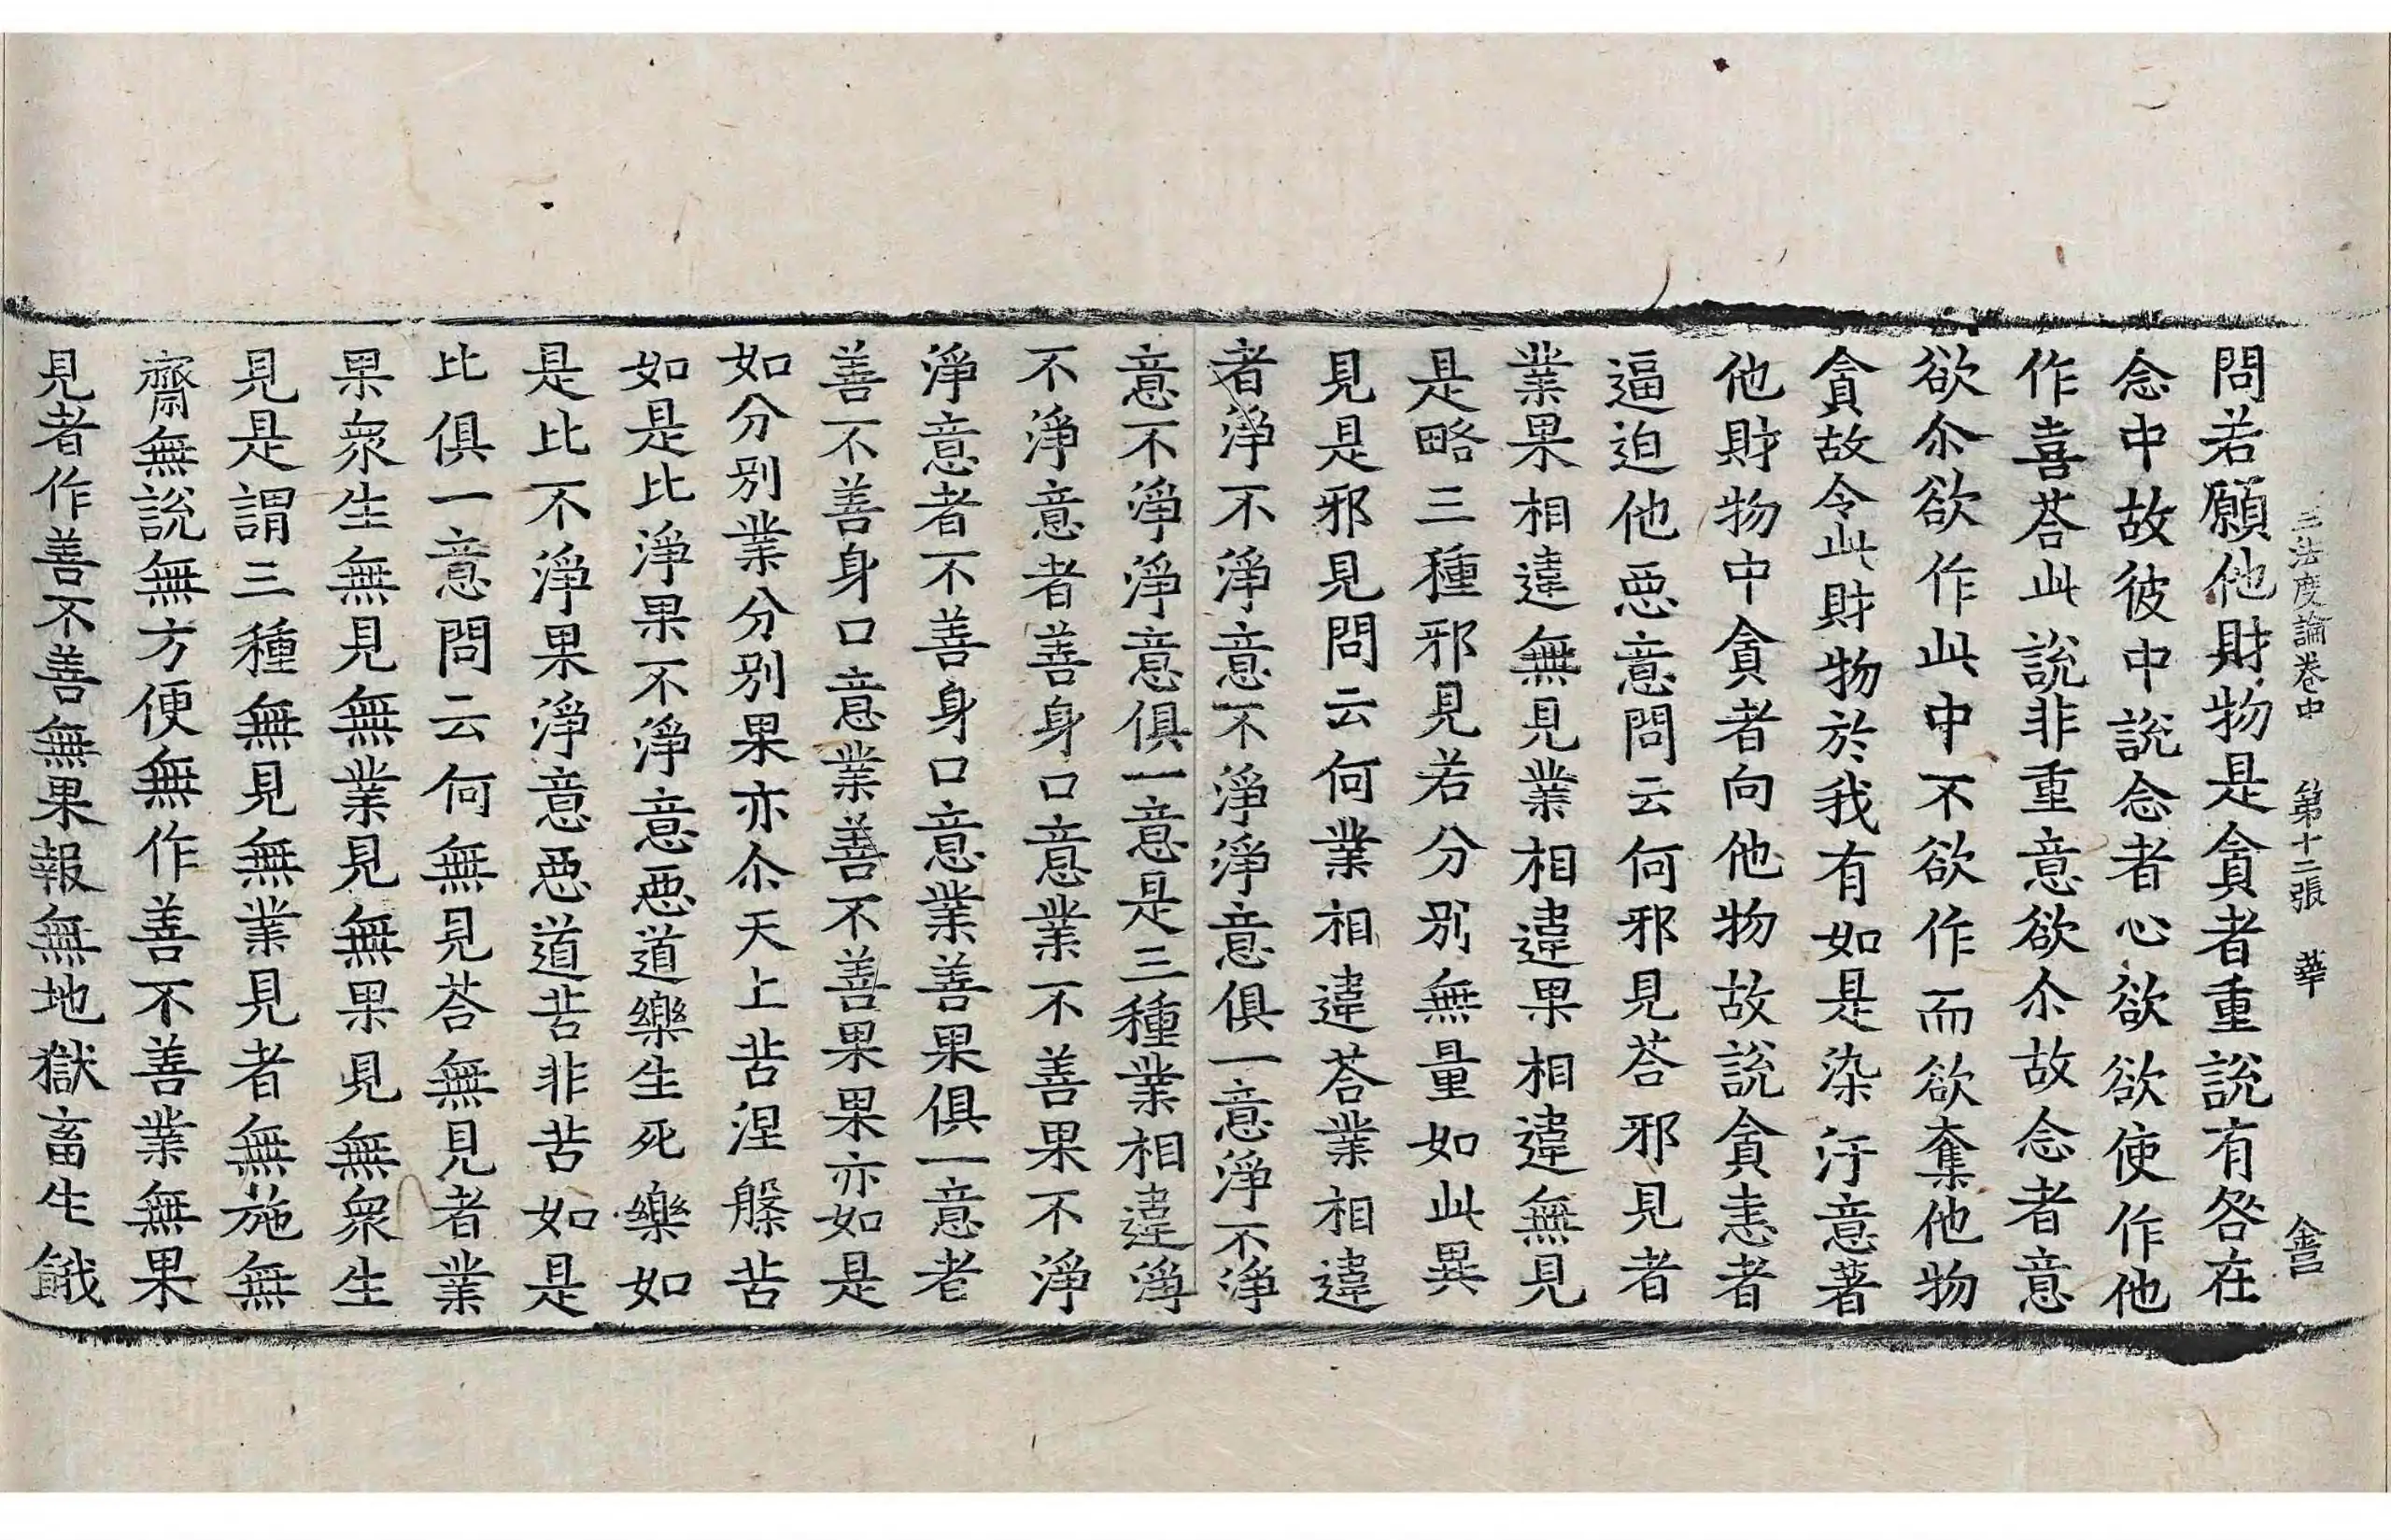 三法度論卷中 第十二張 華 畣
問若願他財物是貪者重說有咎在
念中故彼中說念者心欲欲使作他
作喜荅此說非重意欲尒故念者意
欲尒欲作此中不欲作而欲奪他物
貪故令此財物於我有如是染汙意著
他財物中貪者向他物故說貪恚者
逼迫他惡意問云何邪見荅邪見者
業果相違無見業相違果相違無見
是略三種邪見若分別無量如此異
見是邪見問云何業相違荅業相違
者淨不淨意不淨淨意俱一意淨不淨
意不淨淨意俱一意是三種業相違淨
不淨意者善身口意業不善果不淨
淨意者不善身口意業善果俱一意者
善不善身口意業善不善果果亦如是
如分別業分別果亦尒天上苦涅槃苦
如是比淨果不淨意惡道樂生死樂如
是比不淨果淨意惡道苦非苦如是
比俱一意問云何無見荅無見者業
果衆生無見無業見無果見無衆生
見是謂三種無見無業見者無施無
齋無說無方便無作善不善業無果
見者作善不善無果報無地獄畜生餓